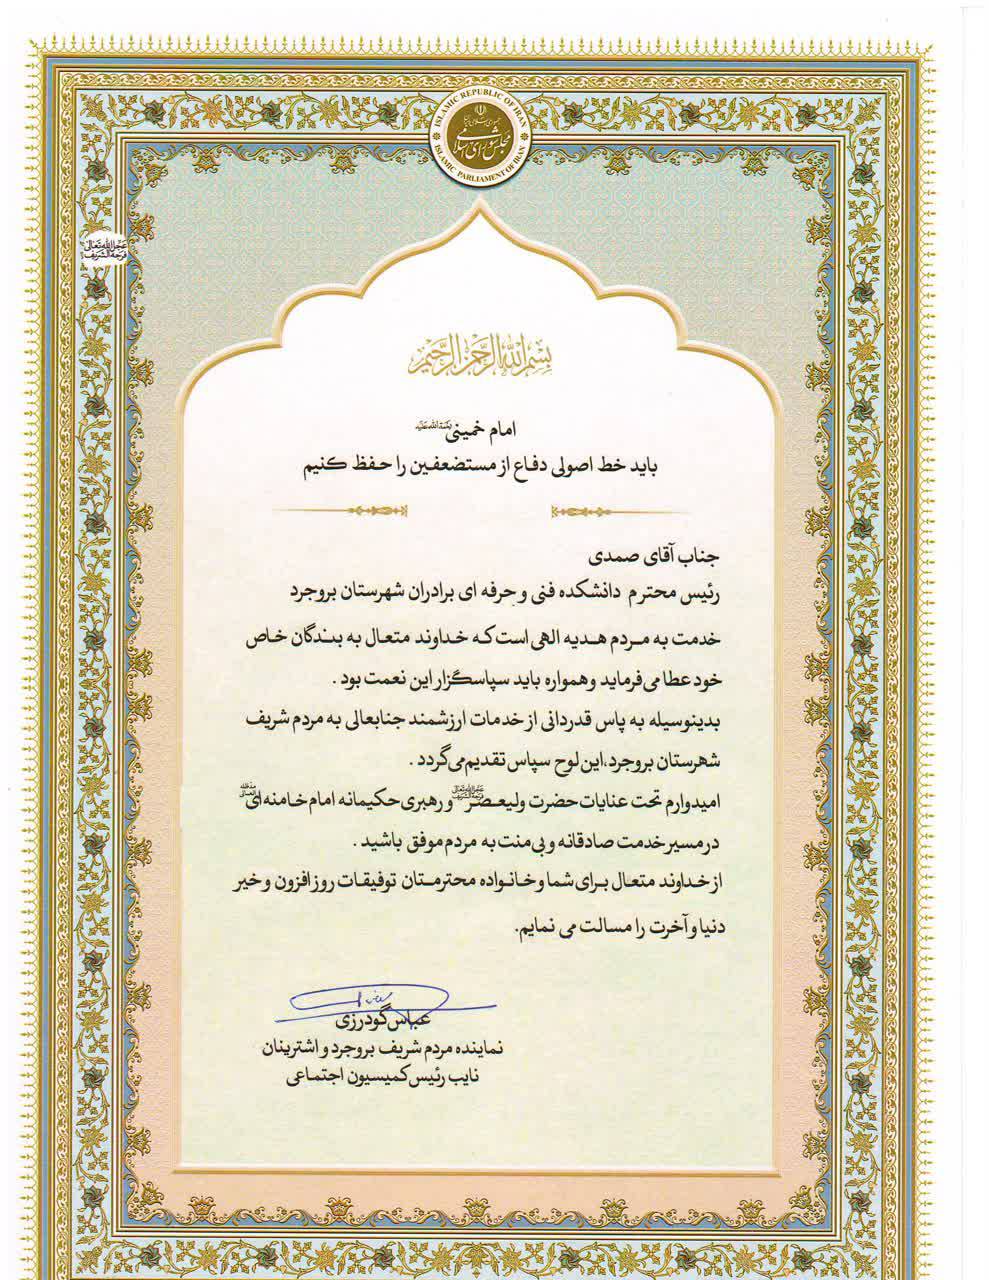 ISLAMIC REPUBLIC OF IRAN
جمهوری اسلامی ایران
مجلس شورای اسلامی
ISLAMIC PARLIAMENT OF IRAN
عجل الله تعالی
فرجه الشریف
بسم الله الرحمن الرحیم
امام خمینی رحمة الله علیه
باید خط اصولی دفاع از مستضعفین را حفظ کنیم
جناب آقای صمدی
رئیس محترم دانشکده فنی و حرفه ای برادران شهرستان بروجرد
خدمت به مردم هدیه الهی است که خداوند متعال به بندگان خاص
خود عطا می فرماید و همواره باید سپاسگزار این نعمت بود .
بدینوسیله به پاس قدردانی از خدمات ارزشمند جنابعالی به مردم شریف
شهرستان بروجرد،این لوح سپاس تقدیم می گردد .
امیدوارم تحت عنایات حضرت ولیعصر عجل الله تعالی فرجه الشریف و رهبری حکیمانه امام خامنه ای مدظله العالی
در مسیر خدمت صادقانه و بی منت به مردم موفق باشید .
از خداوند متعال برای شما و خانواده محترمتان توفیقات روز افزون و خیر
دنیا و آخرت را مسالت می نمایم.
عباس گودرزی
نماینده مردم شریف بروجرد و اشترینان
نایب رئیس کمیسیون اجتماعی